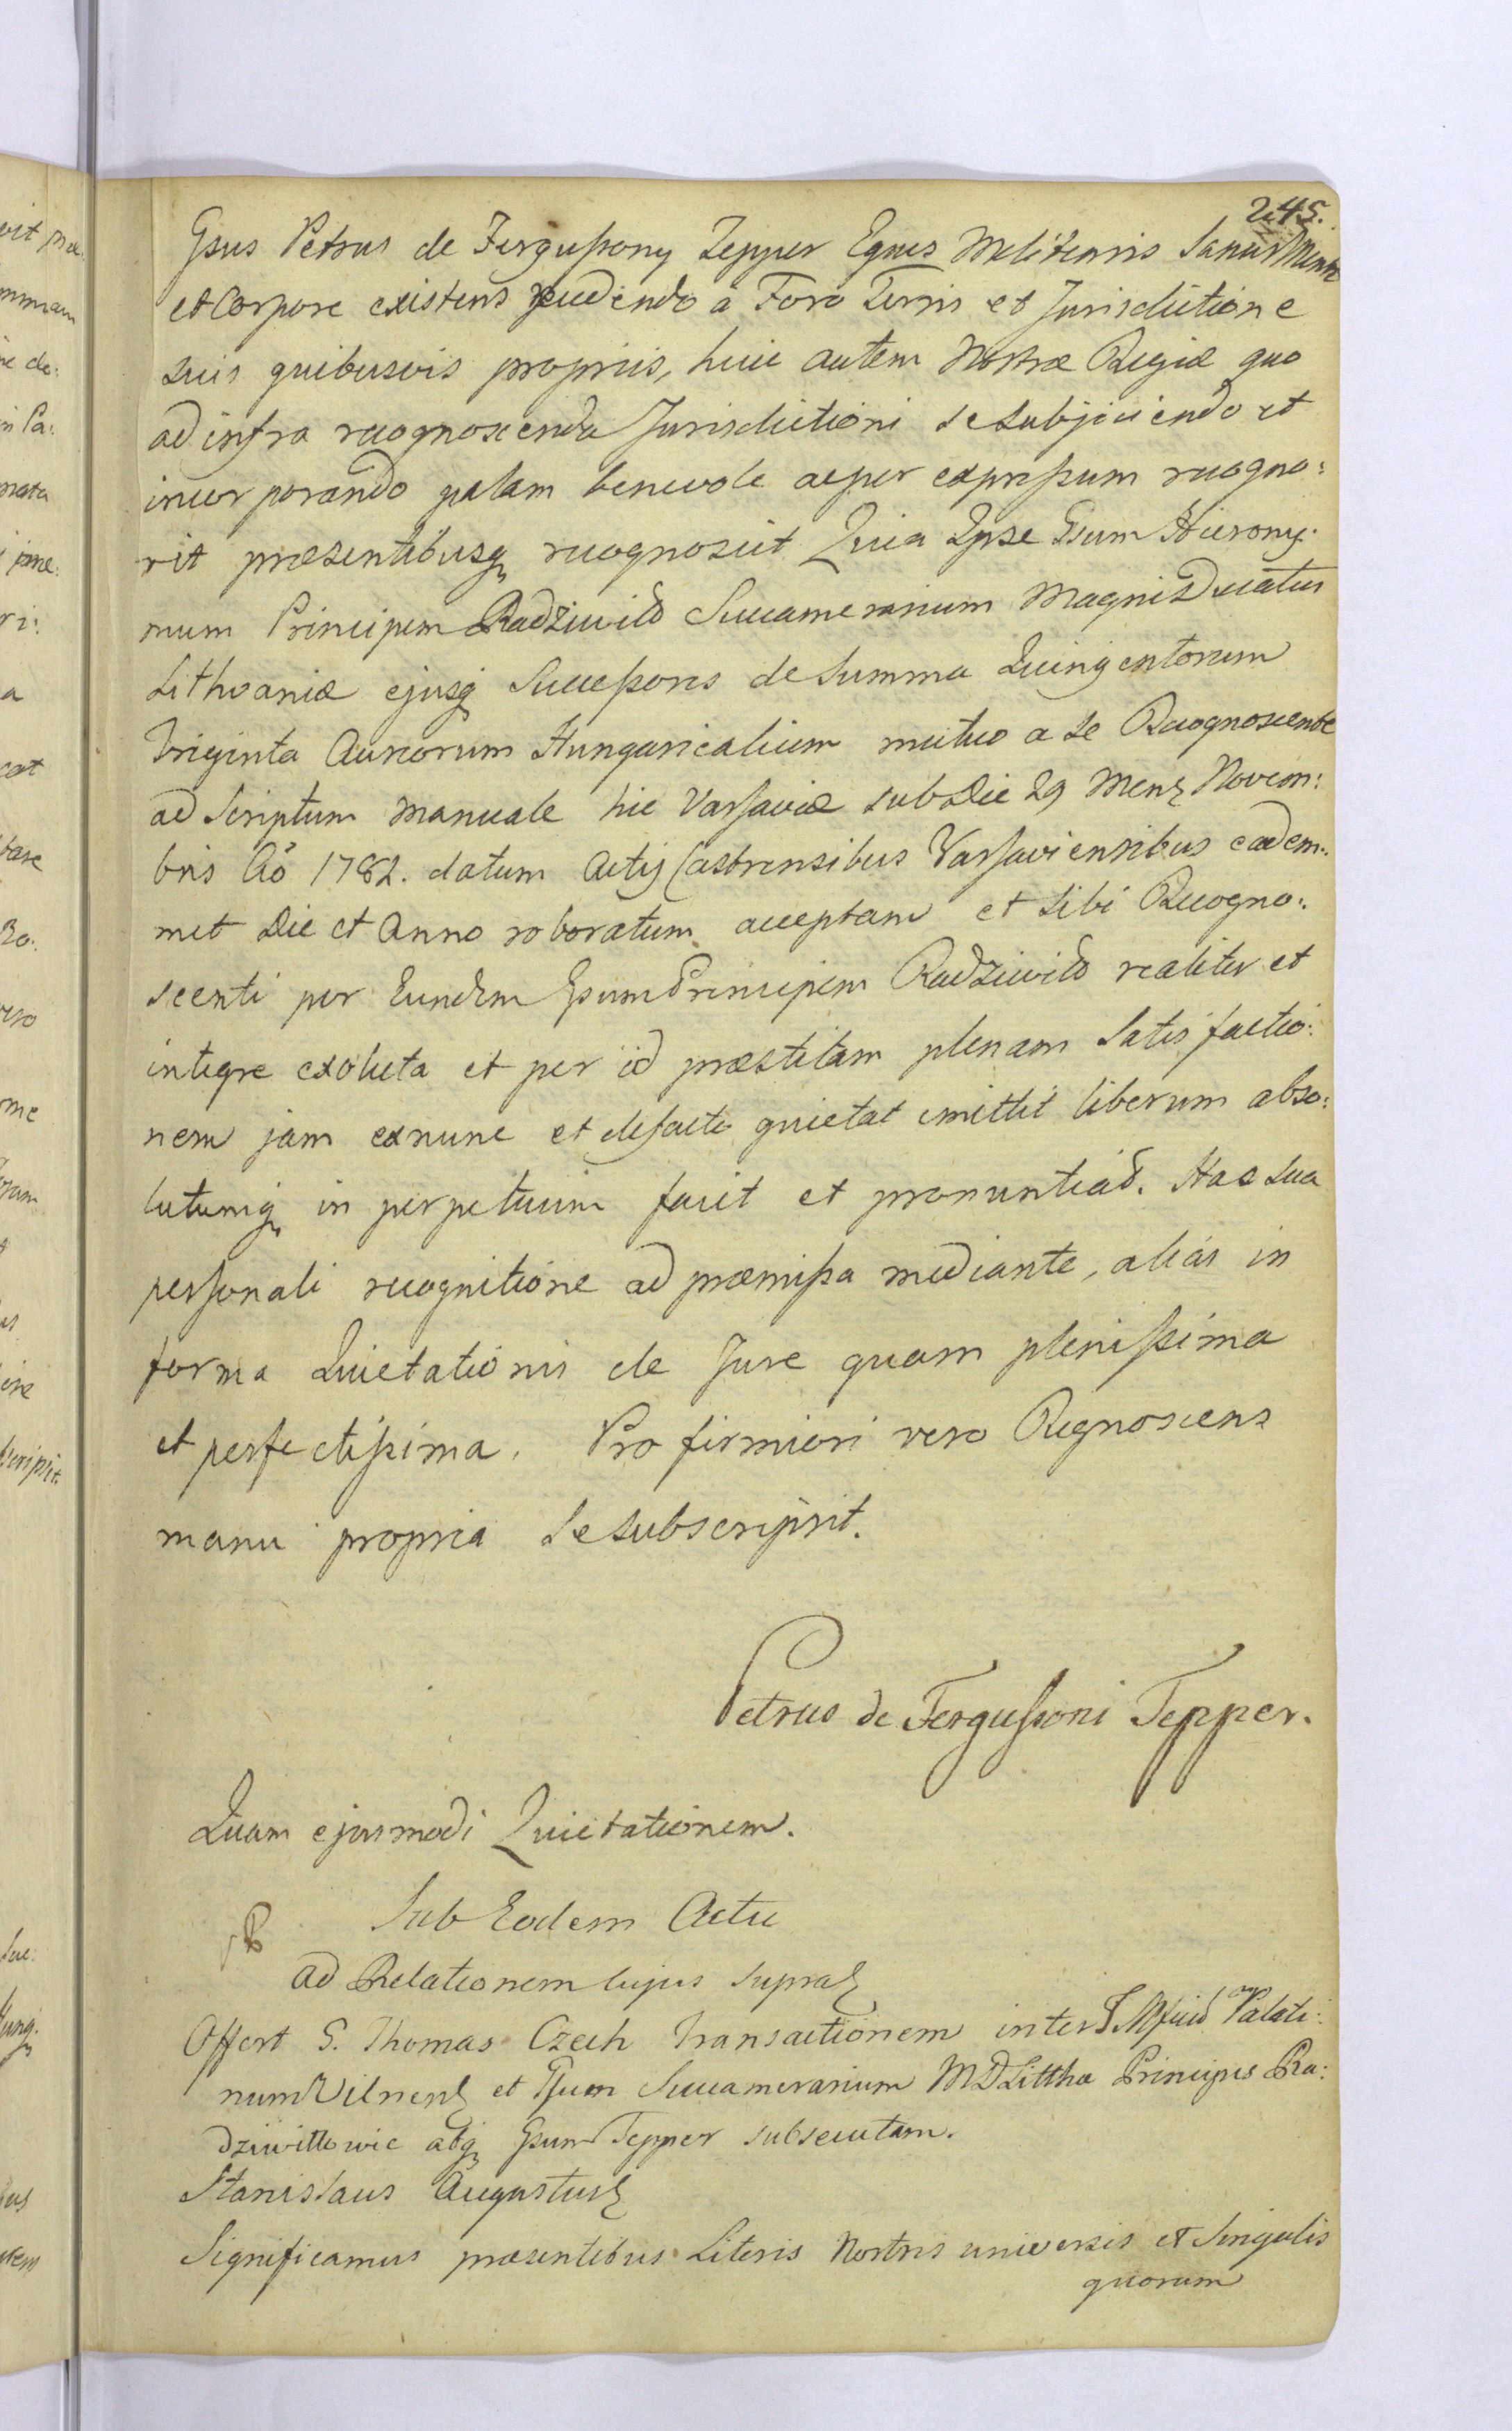 245.
Gsus Petrus de Fergussony Tepper Eques Melitensis Sanus Mente
et Corpore existens recedendo a Foro Terris et Jurisdictione
suis quibusvis propriis, huic autem Nostræ Regiæ quo
ad infra recognoscenda Jurisdictioni se subjiciendo et
incorporando palam benevole ac per expressum recogno:
vit præsentibusq recognoscit Quia Ipse Gsum Hierony:
mum Principem Radziwiłł Succamerarium Magni Ducatus
Lithvaniæ ejusq Successores de Summa Quingentorum
Triginta Aureorum Hungaricalium mutuo a se Recognoscente
ad Scriptum Manuale hic Varsaviæ sub Die 29 Mens Novem:
bris Aō 1782. datum Actis Castrensibus Varsaviensibus eadem:
met Die et Anno roboratum acceptam et sibi Recogno:
scenti per Eundem Gsum Principem Radziwiłł realiter et
integre exoluta et per id præstitam plenam Satisfactio:
nem jam exnunc et defacto quietat emittit liberum abso:
lutumq in perpetuum facit et pronuntiat. Hac sua
personali recognitione ad præmissa mediante, aliàs in
forma Quietationis de Jure quam plenissima
et perfectissima. Pro firmiori vero Regnoscens
manu propria se subscripsit.
Petrus de Fergussoni Tepper.
Quam ejusmodi Quietationem.
Sub Eodem Actu
ad Relationem hujus supra
Offert G. Thomas Czech Transactionem inter Palati:
num Vilnens et Gsum Succamerarium MDLittha Principes Ra:
dziwiłłowie atq Gsum Tepper subsecutam.
Stanislaus Augustus
Significamus præsentibus Literis Nostris universis et singulis
quorum